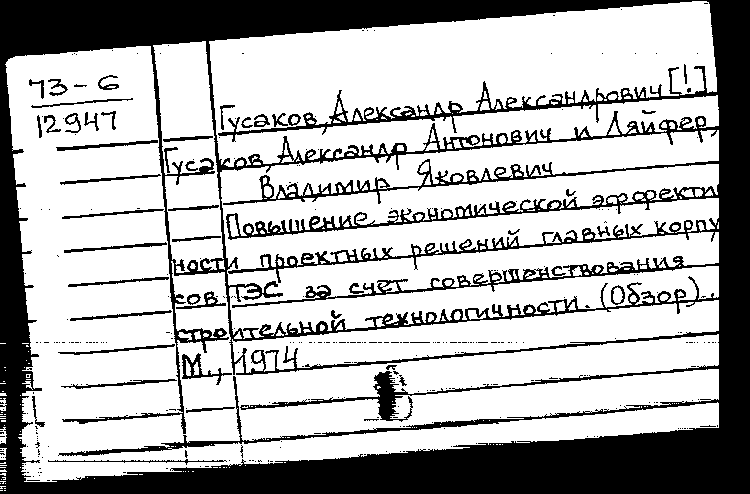 73-6
12947
Гусаков, Александр Александрович [!]
Гусаков, Александр Антонович и Ляйфер,
Владимир Яковлевич.
Повышение экономической эффекти
ности проектных решений главных корпу
сов ТЭС за счет совершенствования
строительной технологичности. (Обзор).
М., 1974.